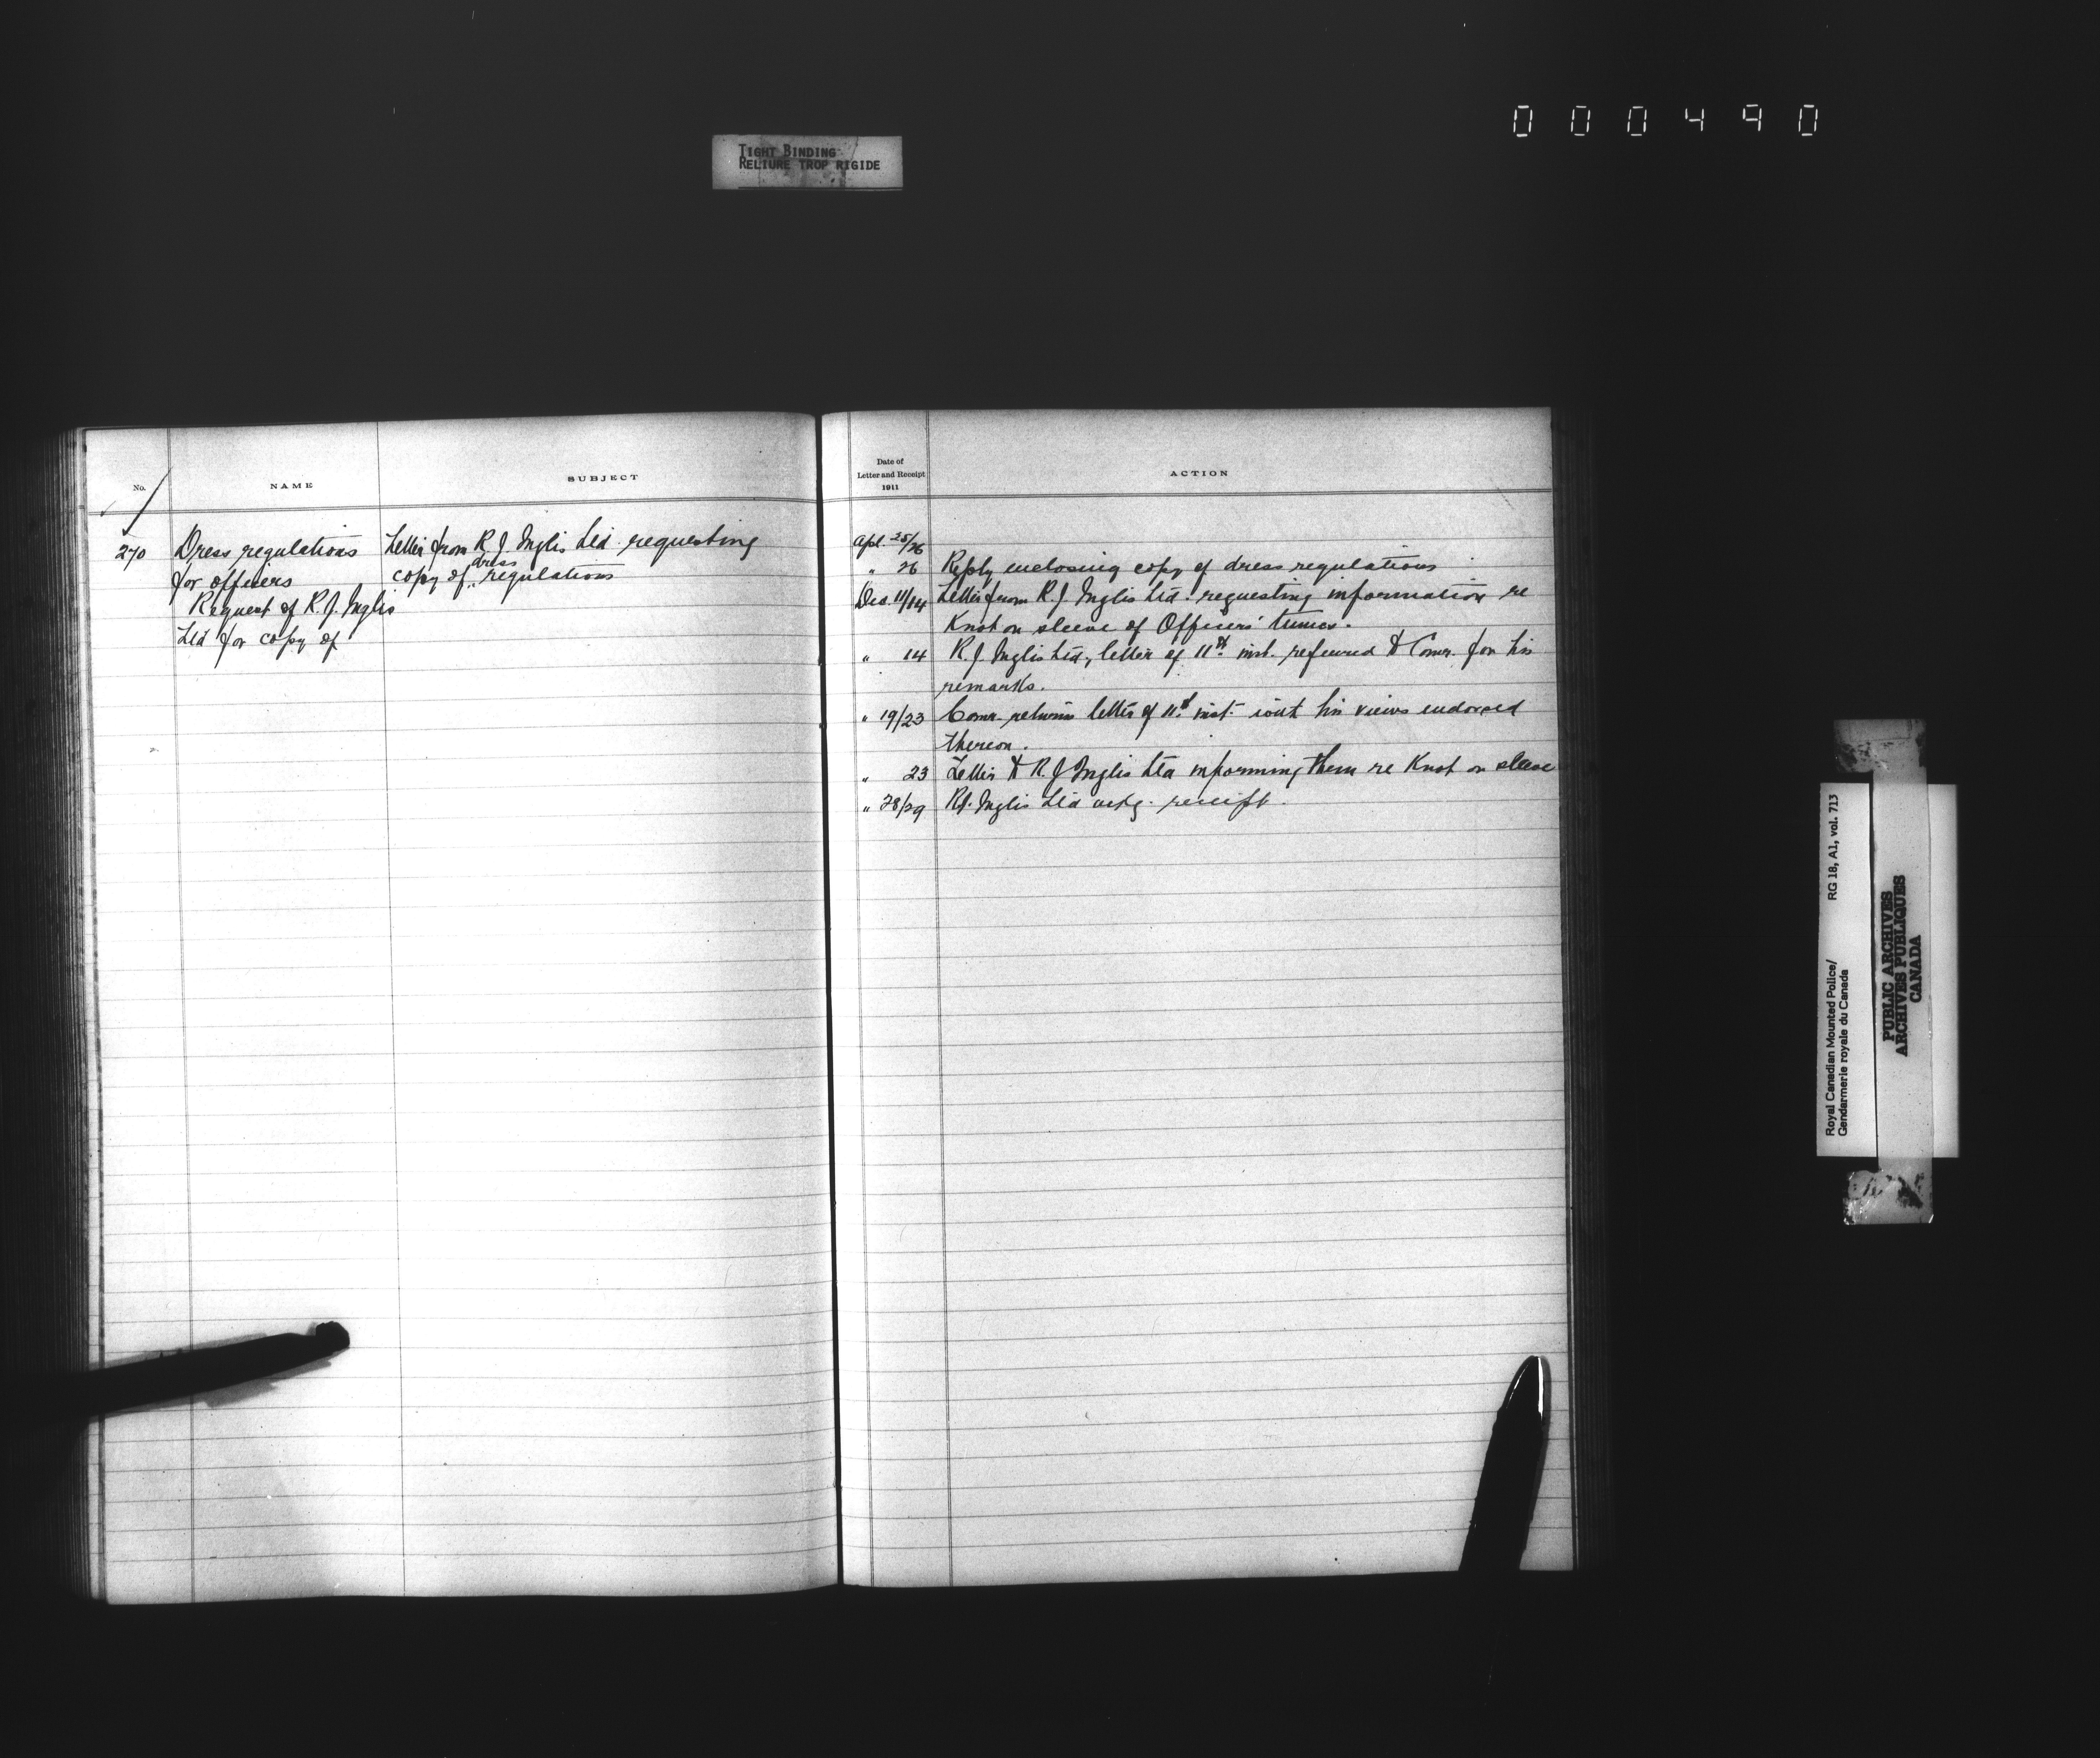 000490
TIGHT BINDING
RELIURE TROP RIGIDE
No.
NAME
SUBJECT
270
Dress regulations
for officers
Request of R. J. Inglis
Ltd for copy of
Letter from R. J. Inglis Ltd. requesting
dress
copy of regulations
Date of
Letter and Receipt
1911
ACTION
Apl. 25/26
" 26 Reply enclosing copy of dress regulations
Dec. 11/14 Letter from R. J. Inglis Ltd. requesting information re
Knot on sleeve of Officers' tunics.
" 14 R. J. Inglis Ltd, letter of 11th inst. referred to Comr. for his
remarks.
" 19/23 Comr. returns letter of 11th inst. with his views endorsed
thereon.
" 23 Letter to R. J. Inglis Ltd informing them re Knot on sleeve
" 28/29 R. J. Inglis Ltd ackg. receipt.
Royal Canadian Mounted Police/ RG 18, A1, vol. 713
Gendarmerie royale du Canada
PUBLIC ARCHIVES
ARCHIVES PUBLIQUES
CANADA